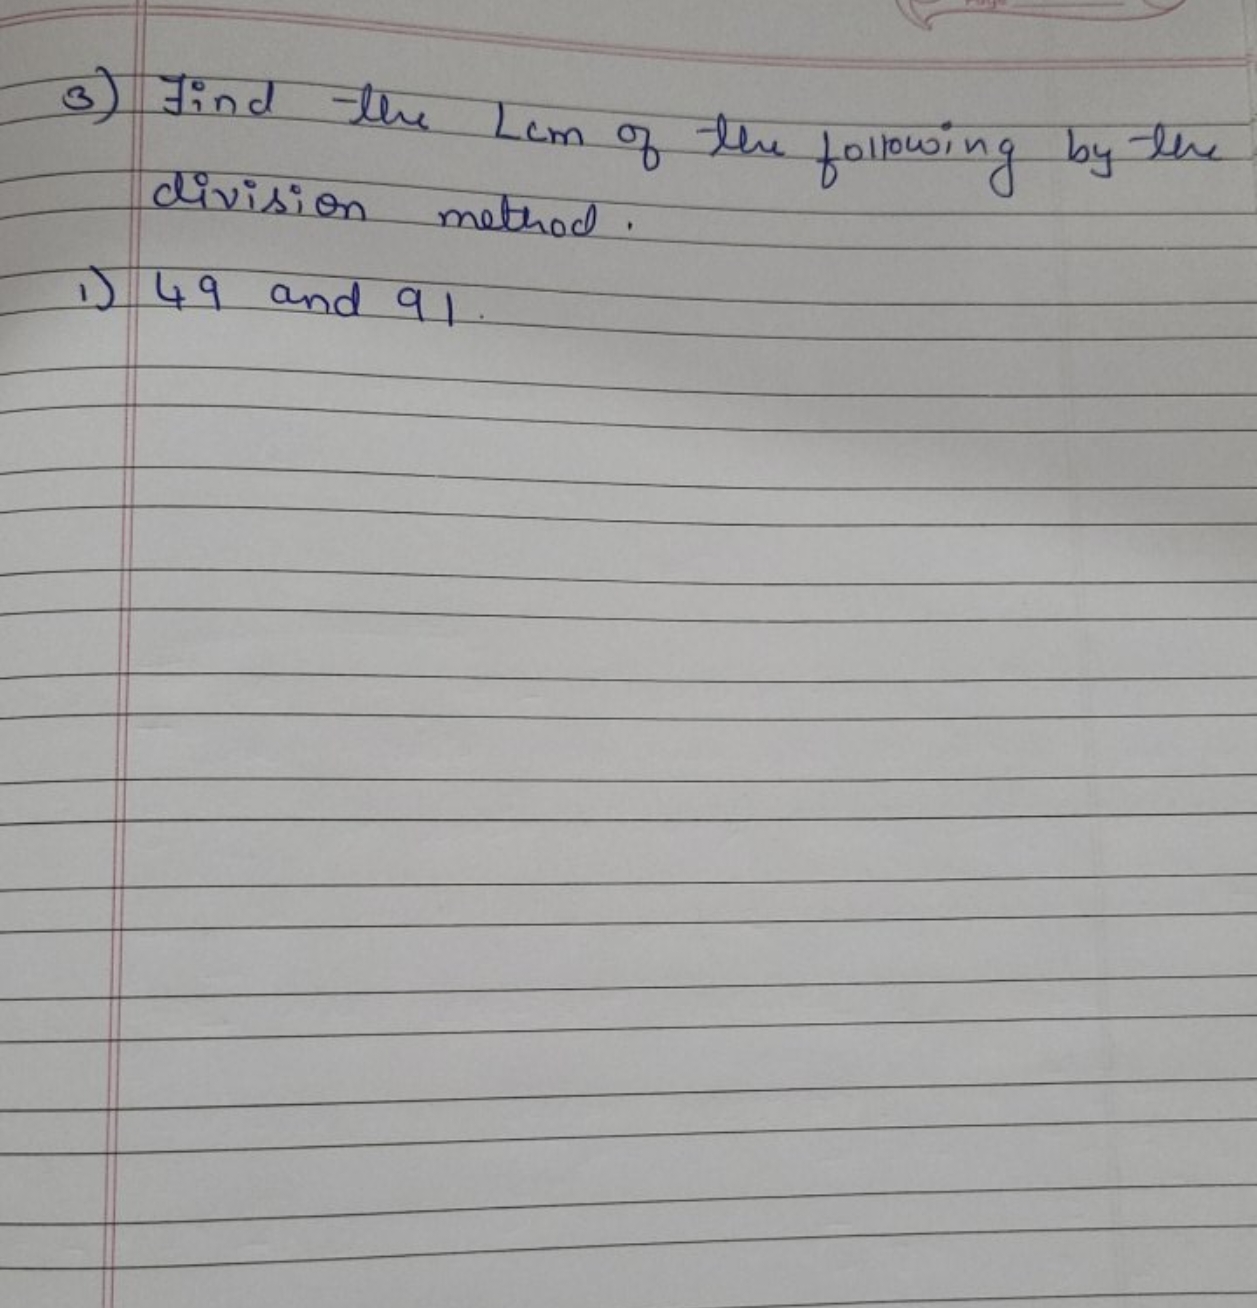 3) Find the Lcm of the following by the
division method.
1) 49 and 91.